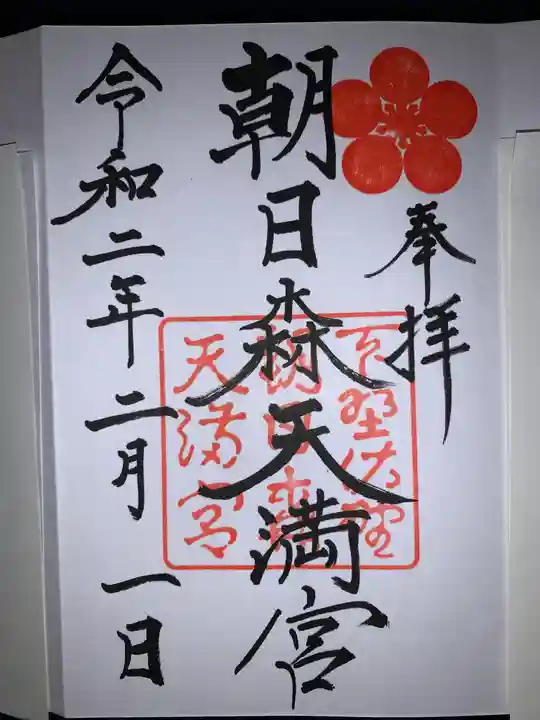 奉拝
朝日森天満宮
下野佐野
朝日森
天満宮
令和二年二月一日